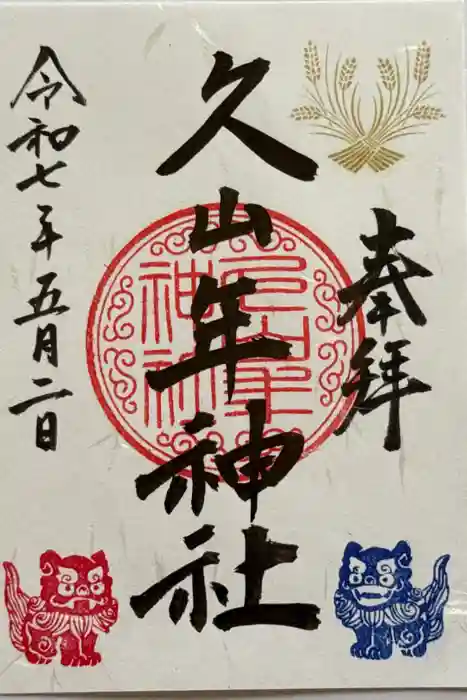 奉拝
久山年神社
久山年神社
令和七年五月二日